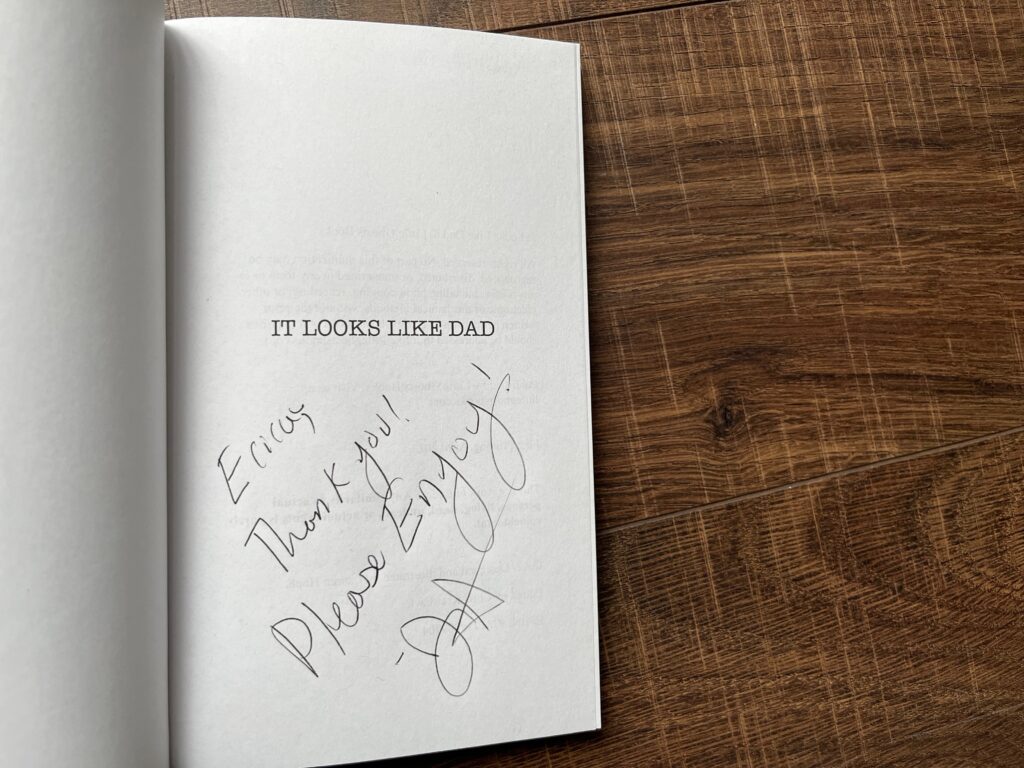 IT LOOKS LIKE DAD
Ericus
Thank you!
Please Enjoy!
-JA